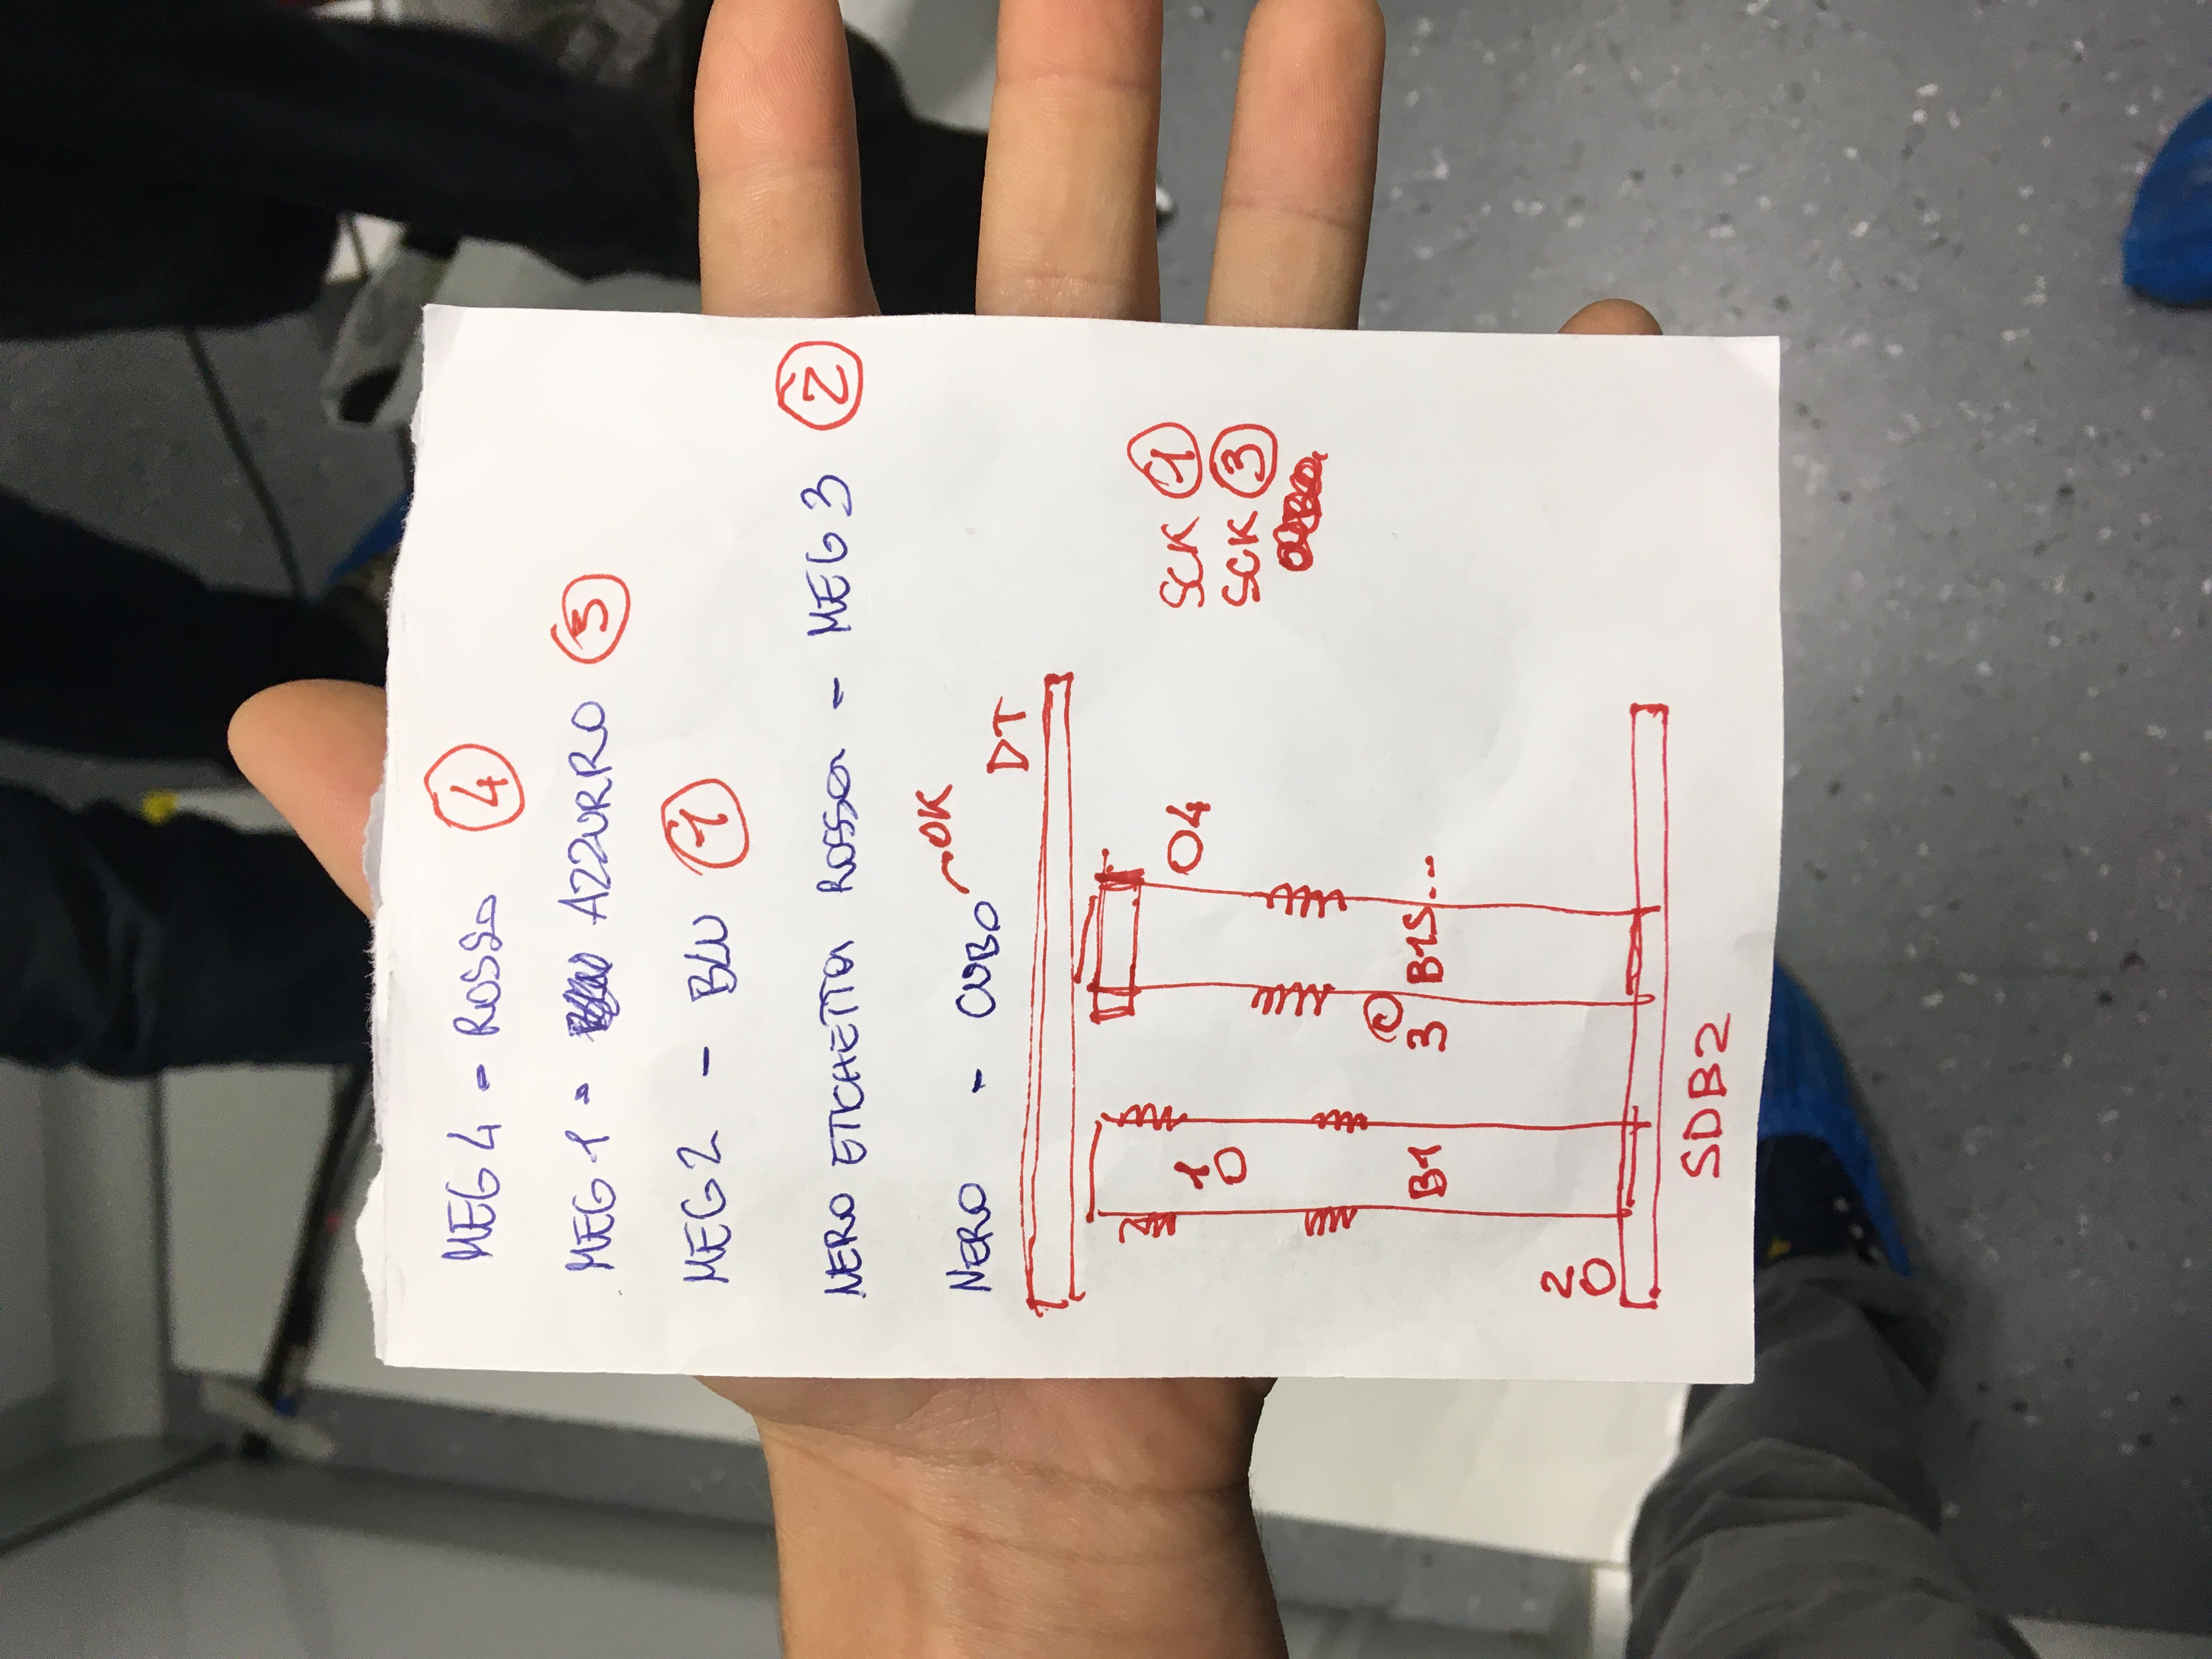 MEG 4 - ROSSO 4
MEG 1 - AZZURRO 3
MEG 2 - BLU 1
NERO ETICHETTA ROSSA - MEG 3 2
NERO - CUBO OK
DT
SCK 1
SCK 3
O4
1
O
3
B1
B1S...
2
O
SDB2